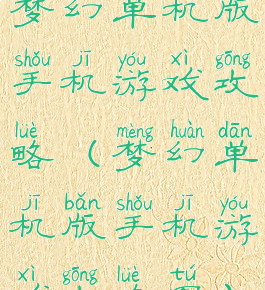 梦幻单机版
shǒu jī yóu xì gōng
手机游戏攻
lüè mèng huàn dān
略（梦幻单
jī bǎn shǒu jī yóu
机版手机游
xì gōng lüè tú